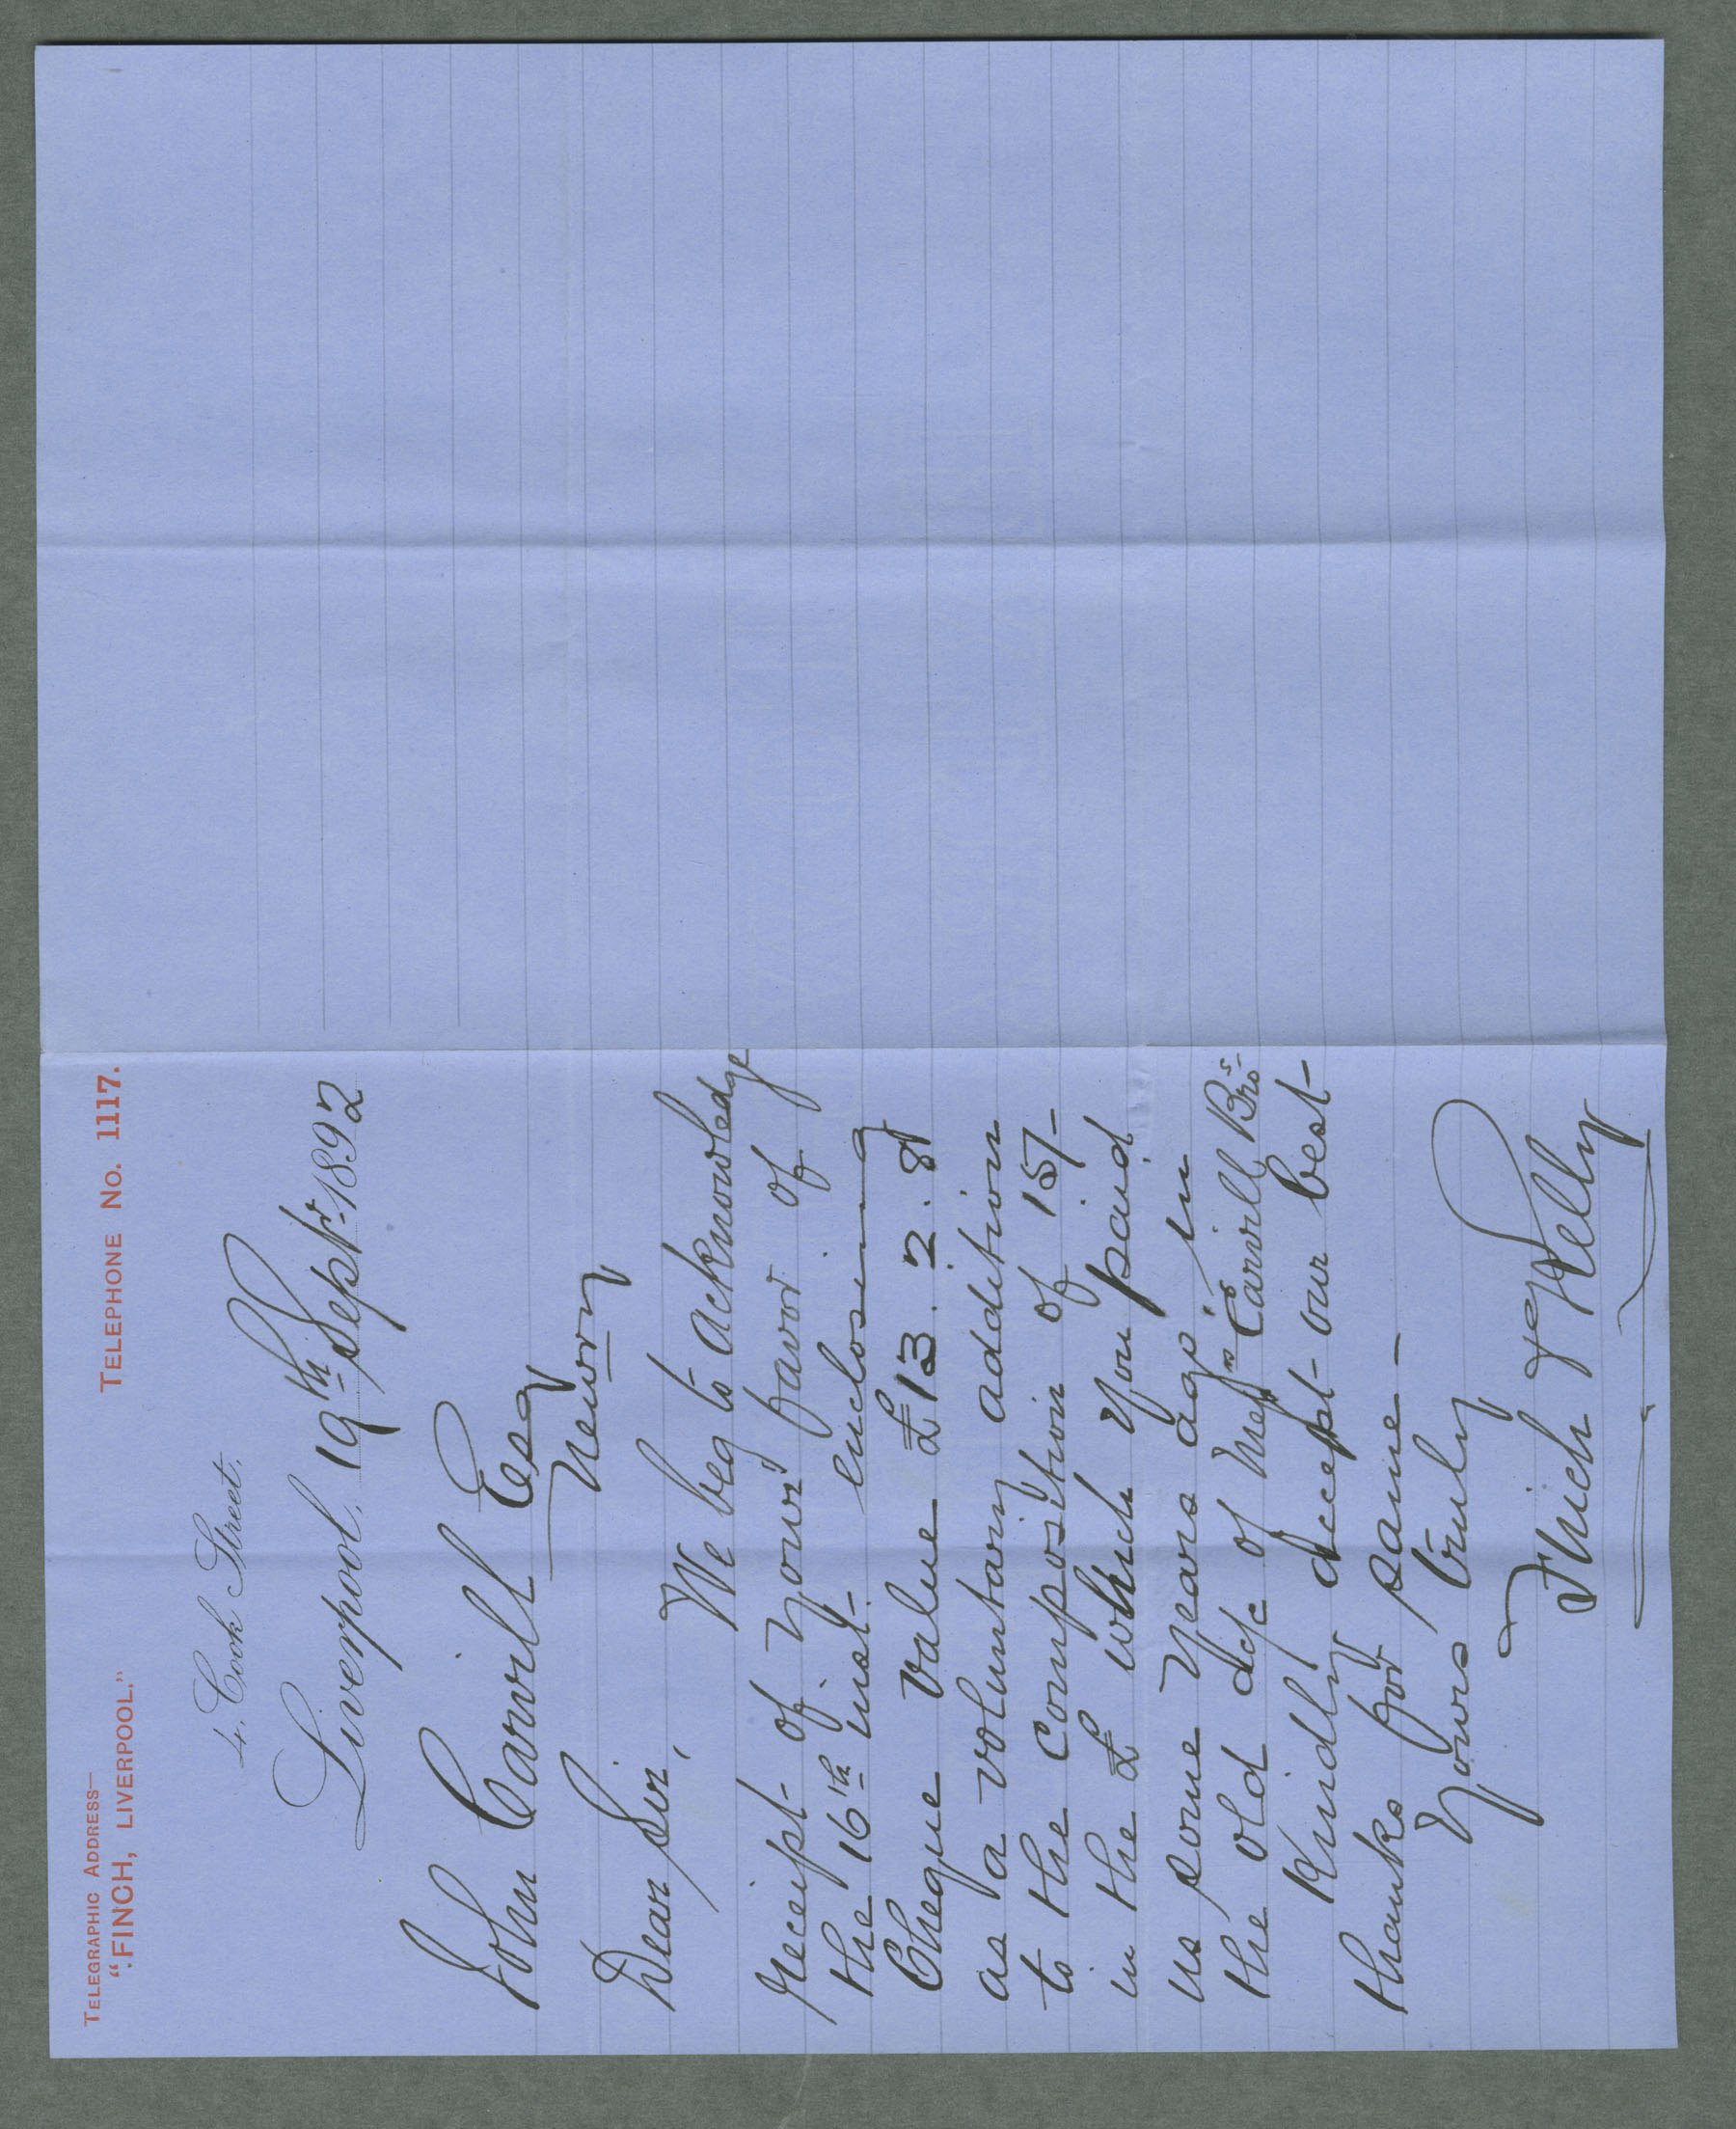 TELEGRAPHIC ADDRESS—
"FINCH, LIVERPOOL."
TELEPHONE No. 1117.
4, Cook Street,
Liverpool, 19th Septr 1892
John Carvill Esq
Newry
Dear Sir,
We beg to acknowledge
receipt of your favor of
the 16th inst enclosing
Cheque value £13.2.8
as a voluntary addition
to the composition of 15/-
in the £ which you paid
us some years ago in
the old a/c of Messrs Carvill Bros
Kindly accept our best
thanks for same —
Yours truly
Finch & Kelly